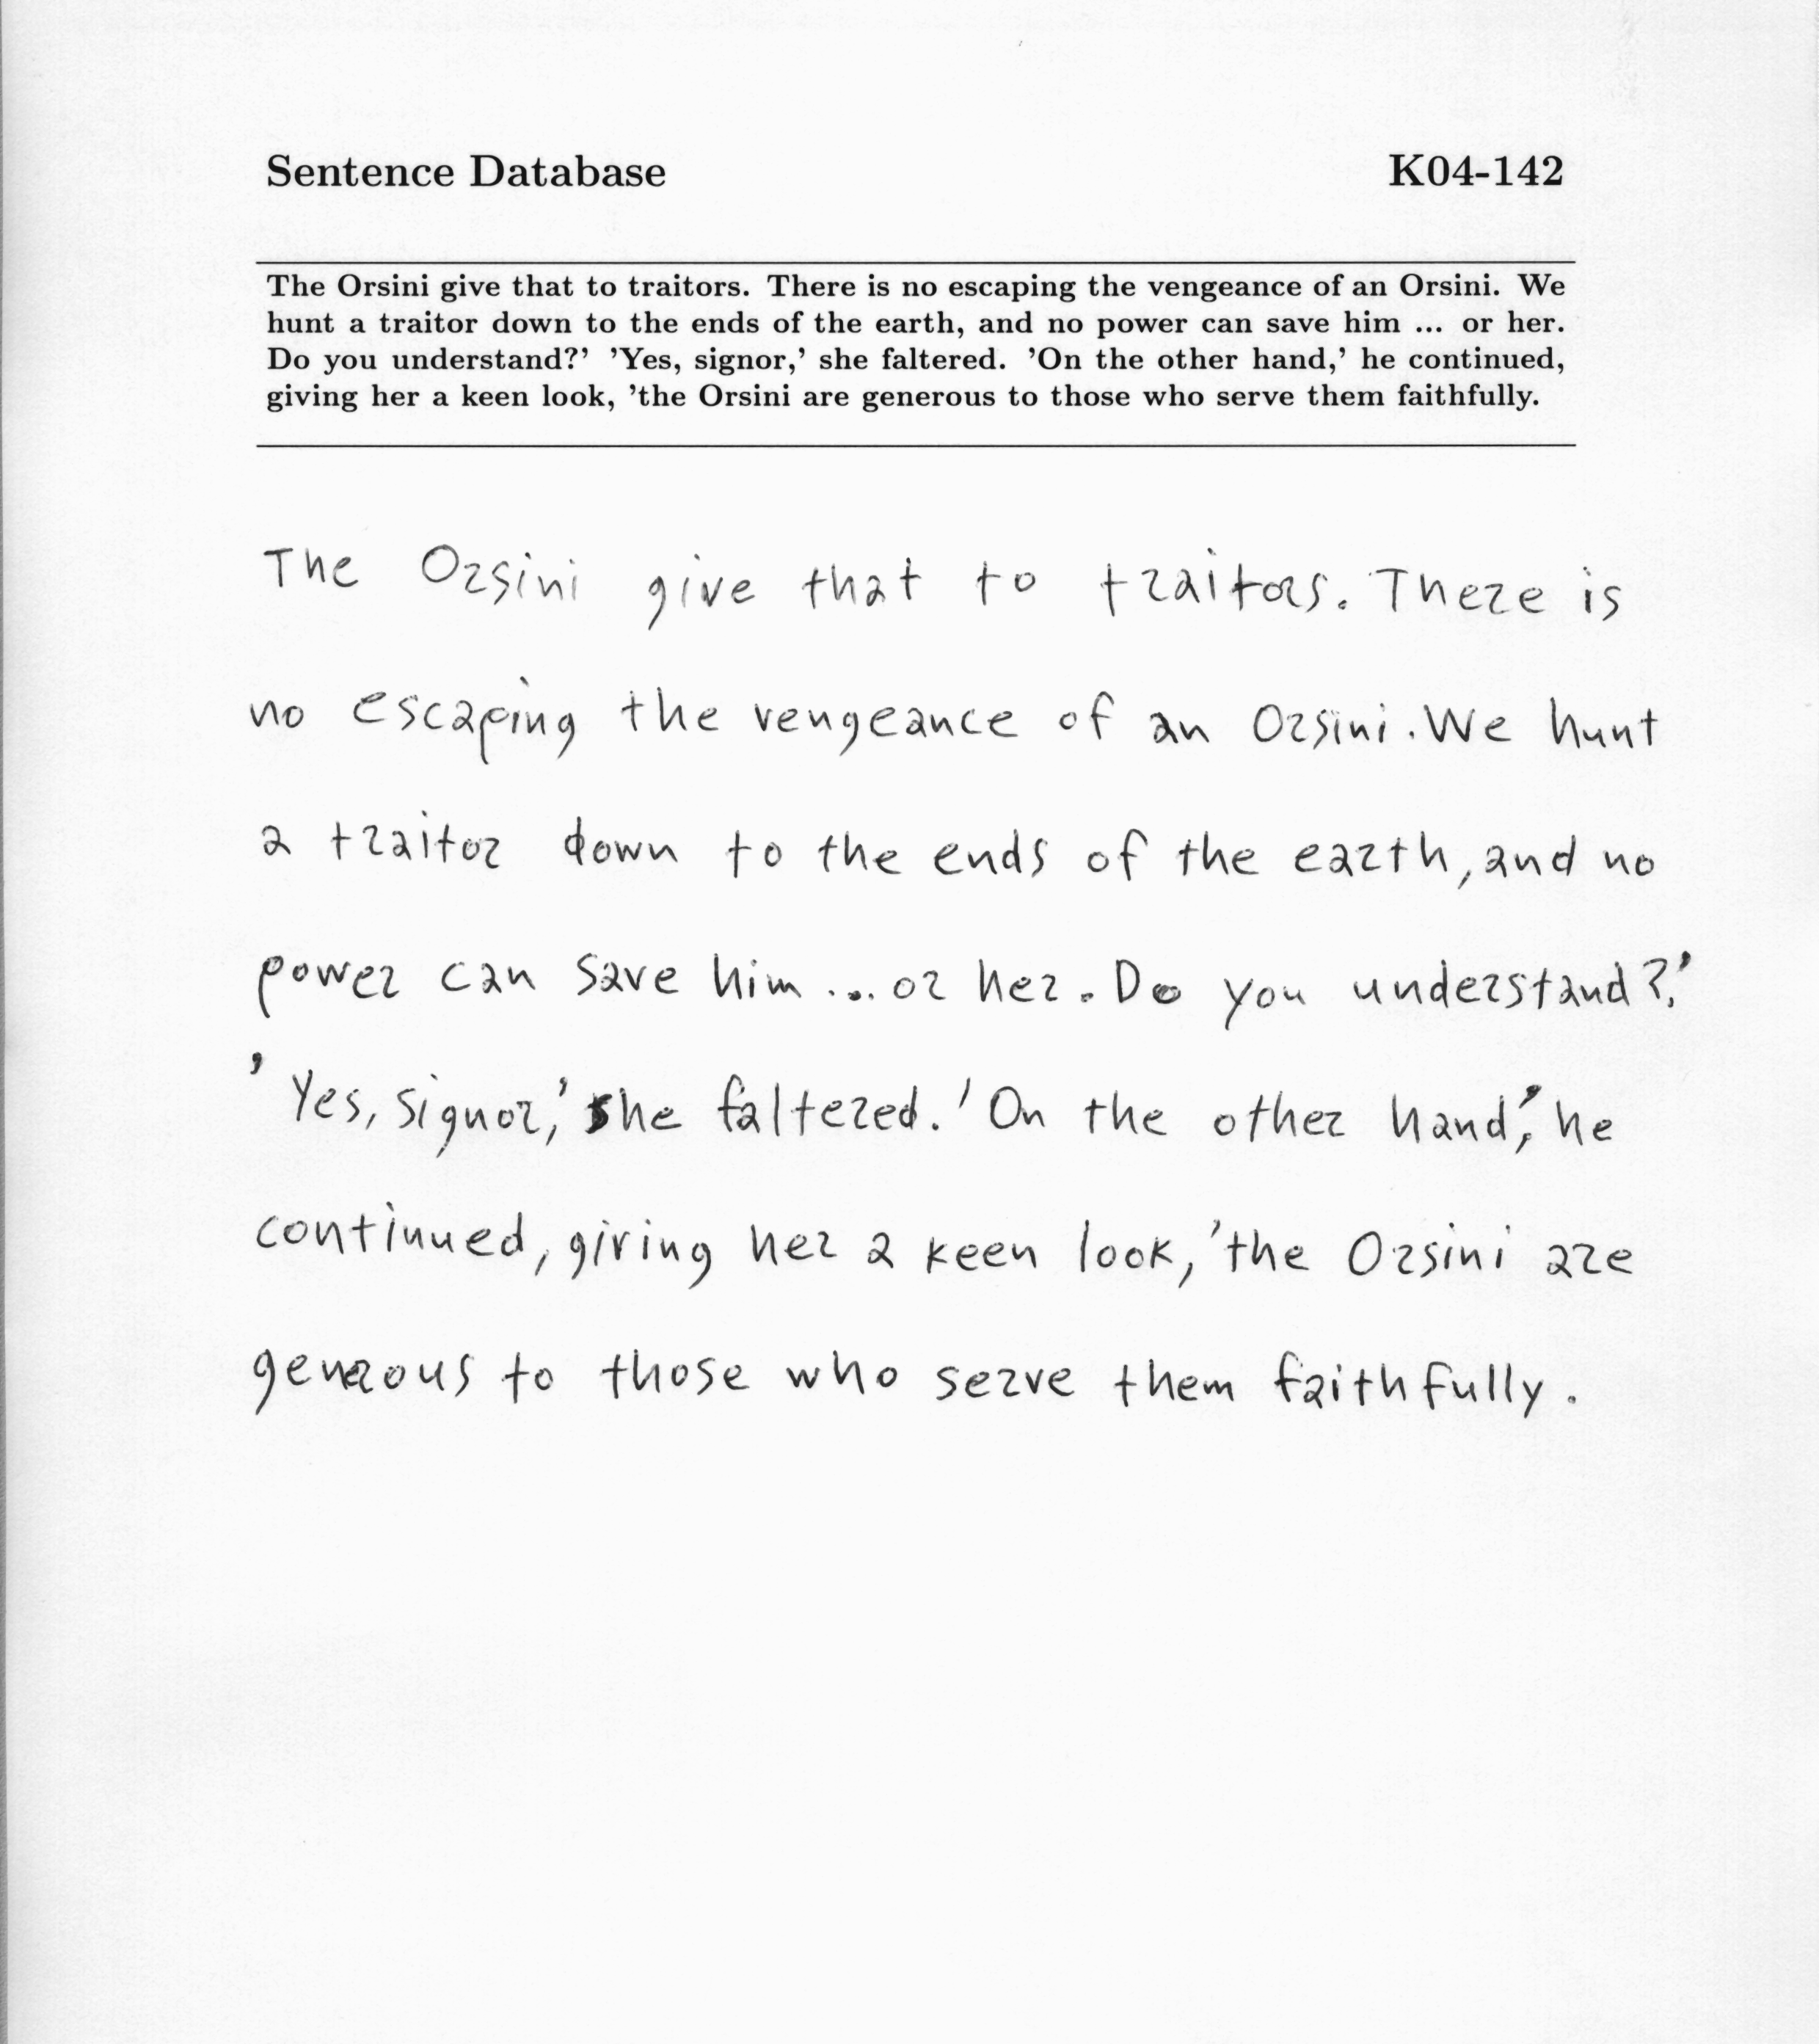 Sentence Database K04-142
The Orsini give that to traitors. There is no escaping the vengeance of an Orsini. We
hunt a traitor down to the ends of the earth, and no power can save him ... or her.
Do you understand?' 'Yes, signor,' she faltered. 'On the other hand,' he continued,
giving her a keen look, 'the Orsini are generous to those who serve them faithfully.
The Orsini give that to traitors. There is
no escaping the vengeance of an Orsini. We hunt
a traitor down to the ends of the earth, and no
power can save him ... or her. Do you understand?,'
'Yes, signor,' she faltered. 'On the other hand,' he
continued, giving her a keen look, 'the Orsini are
generous to those who serve them faithfully.